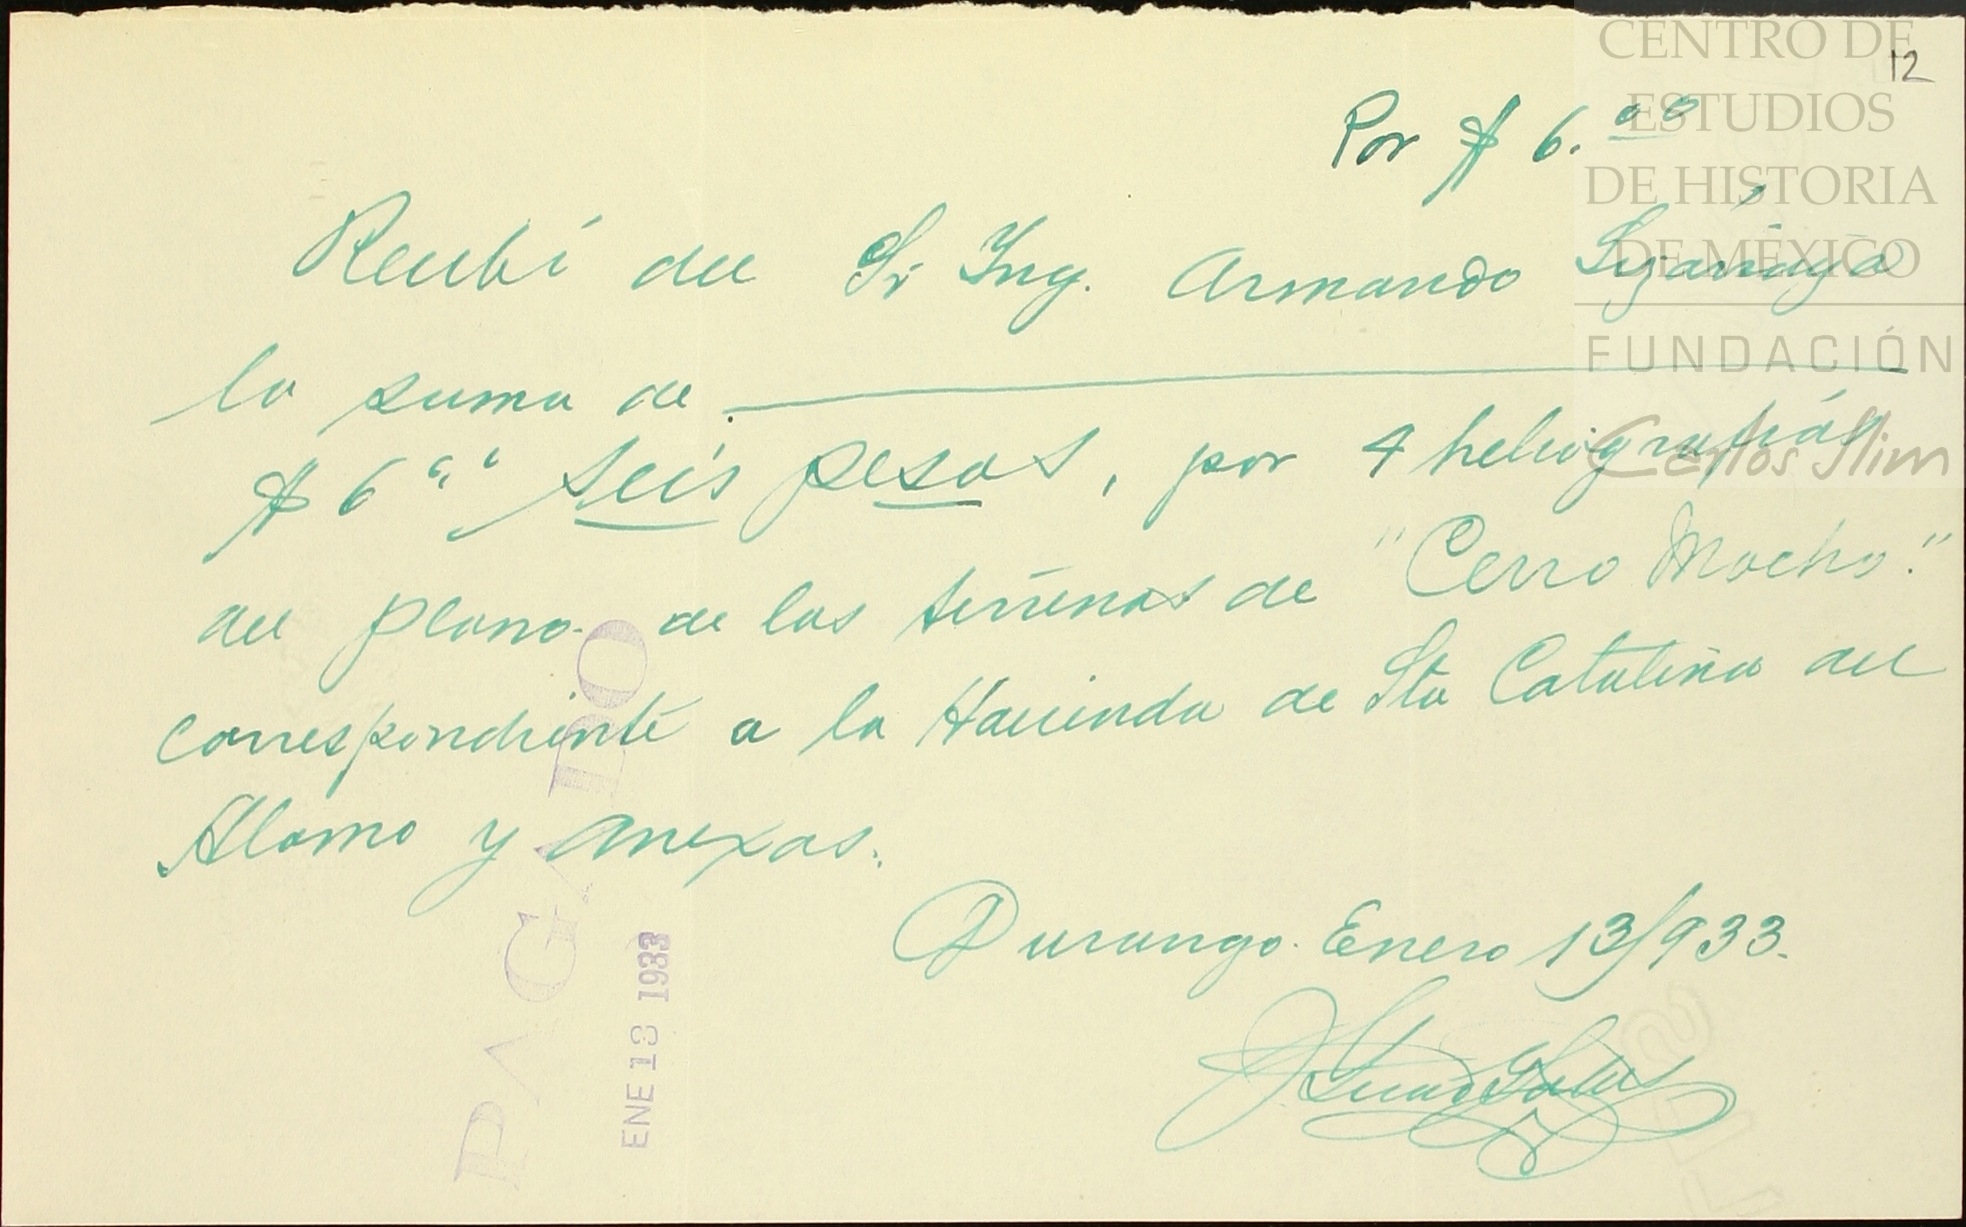 12
CENTRO DE
ESTUDIOS
DE HISTORIA
DE MÉXICO
FUNDACIÓN
Carlos Slim
Por $ 6.00
Recibí del Sr Ing. Armando
la suma de
$ 6.00 seis pesos, por 4 heliografías
del plano de los terrenos de "Cerro Mocho."
correspondiente a la Hacienda de Sta Catalina del
Alamo y anexas.
Durango. Enero 13/933.
PAGADO
ENE 13 1933